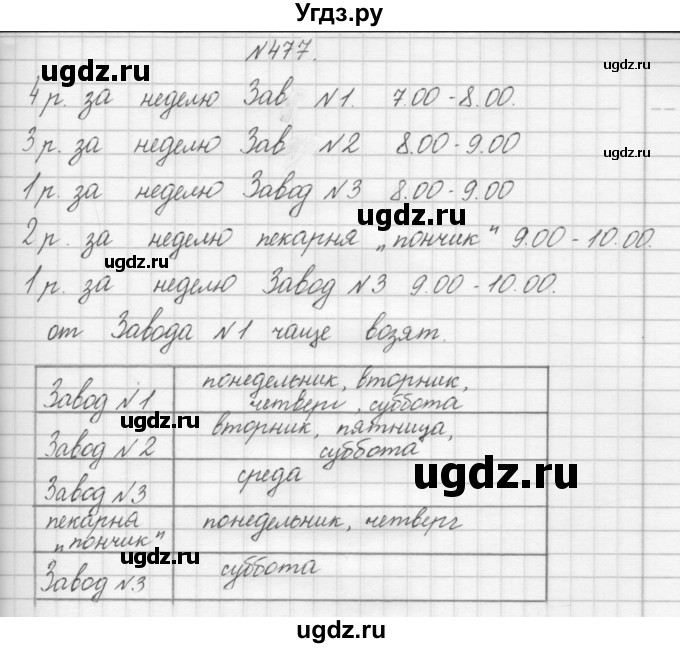 Угдз.ру
№477.
ugdz.ru
ugdz.ru
4 р. за неделю Зав №1. 7.00-8.00.
3 р. за неделю Зав №2 8.00-9.00
ugdz.ru
1 р. за неделю Завод №3 8.00-9.00
ugdz.ru
2 р. за неделю пекарня „пончик" 9.00-10.00.
ugdz.ru
1 р. за неделю Завод №3 9.00-10.00.
от Завода №1 чаще возят.
Завод №1 понедельник, вторник,
четверг, суббота
Завод №2 вторник, пятница,
суббота
ugdz.ru
Завод №3 среда
пекарна понедельник, четверг
„пончик"
ugdz.ru
Завод №3 суббота
ugdz.ru
ugdz.ru